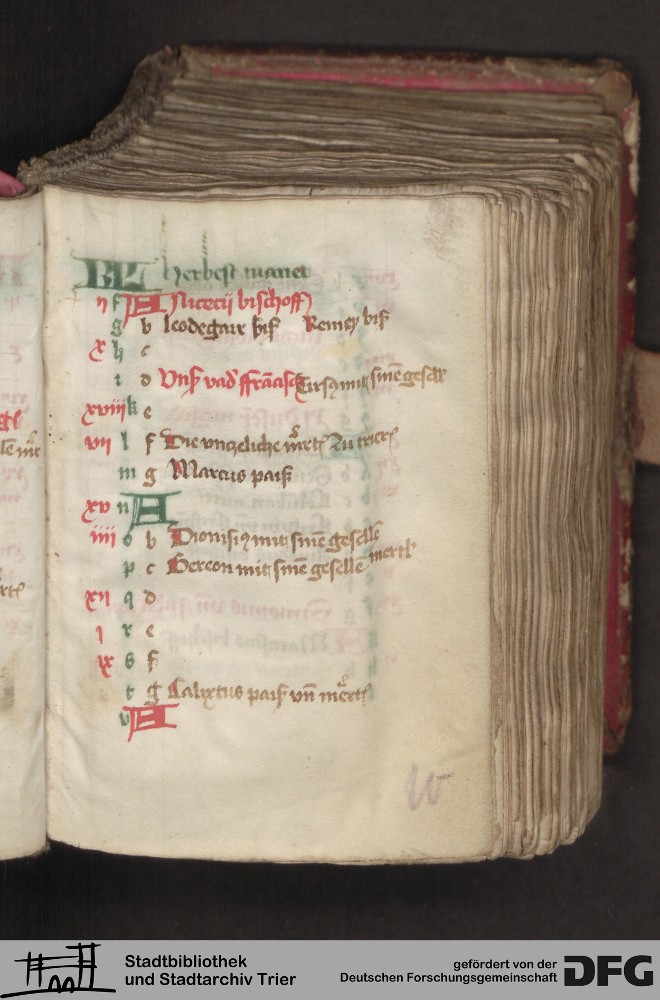 KL herbest manet
f A Nicecij bischoff
g b leodegari bis Remey bis
x h c
i d Vns vad ffrācisc mit sine geselle
xviii k e
vii l f Die vnzeliche mert zu trier
m g Marcus pais
xv n A
iiii o b Dionisiꝯ mit sine geselle
p c Gereon mit sine geselle mertl
xii q d
i r e
ix s f
t g Calixtus pais vn mert
v A
10
Stadtbibliothek
und Stadtarchiv Trier
gefördert von der
Deutschen Forschungsgemeinschaft
DFG